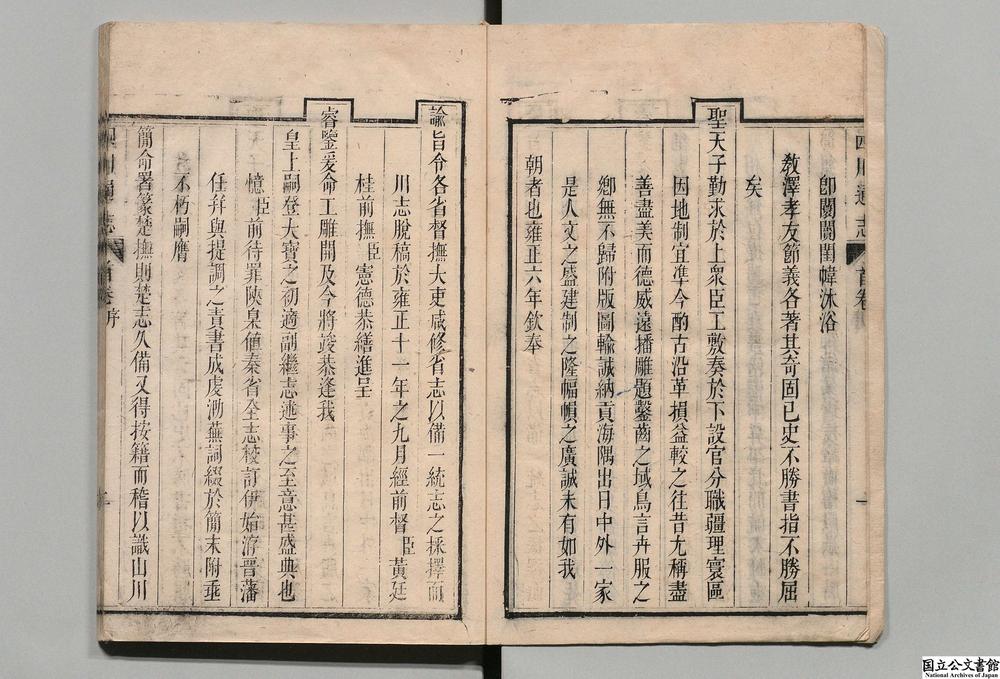 四川通志
首卷
一
卽閿閿閨幃沐浴
敎澤孝友節義各著其奇固已史不勝書指不勝屈
矣
聖天子勤求於上衆臣工敷奏於下設官分職疆理寰區
因地制宜準今酌古沿革損益較之往昔尤稱盡
善盡美而德威遠播雕題鑿齒之域鳥言卉服之
鄉無不歸附版圖輸誠納貢海隅出日中外一家
是人文之盛建制之隆幅幀之廣誠未有如我
朝者也雍正六年欽奉
諭旨令各省督撫大吏咸修省志以備一統志之採擇而
川志脫稿於雍正十一年之九月經前督臣黃廷
桂前撫臣憲德恭繕進呈
睿鑒爰命工雕開及今將竣恭逢我
皇上嗣登大寶之初適副繼志述事之至意甚盛典也
憶臣前待罪陝臬値秦省全志校訂伊始洊晉藩
任幷與提調之責書成處泐蕪詞綴於簡末附垂
不朽嗣膺
簡命署篆楚撫則楚志久備又得按籍而稽以識山川
四川通志
首卷 序
二
国立公文書館
National Archives of Japan